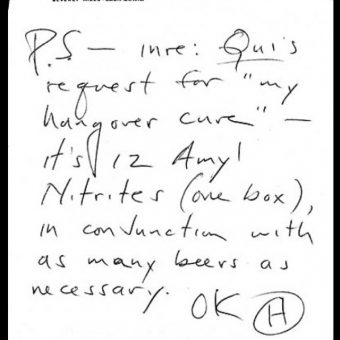 P.S — inre: Qui's
request for "my
hangover cure" —
it's 12 Amyl
Nitrites (one box),
in conjunction with
as many beers as
necessary.
OK H